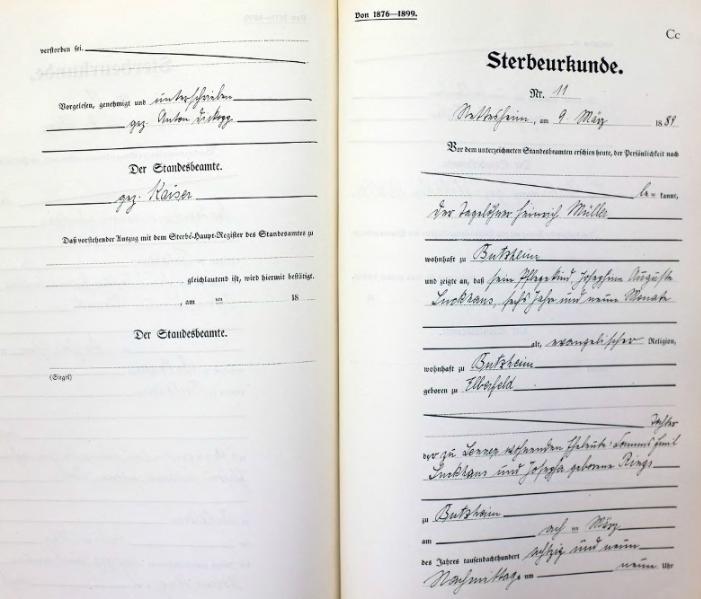 verstorben sei.
Vorgelesen, genehmigt und unterschrieben
gez. Anton
Der Standesbeamte.
gez. Kaiser
Daß vorstehender Auszug mit dem Sterbe-Haupt-Register des Standesamtes zu
gleichlautend ist, wird hiermit bestätigt.
, am ten 18
Der Standesbeamte.
(Siegel)
Von 1876—1899.
Cc
Sterbeurkunde.
Nr. 11
Nettesheim, am 9. März 1889
Vor dem unterzeichneten Standesbeamten erschien heute, der Persönlichkeit nach
be= kannt,
der Tagelöhner Heinrich Müller
wohnhaft zu Butzheim
und zeigte an, daß sein Pflegekind Josephine Auguste
Luckhaus, sechs Jahr und neun Monate
alt, evangelischer Religion,
wohnhaft zu Butzheim
geboren zu Elberfeld
Tochter
der zu Lennep wohnenden Eheleute: Emil
Luckhaus und Josepha geborene Rings
zu Butzheim
am acht ten März
des Jahres tausendachthundert achtzig und neun
Nachmittags um neun Uhr